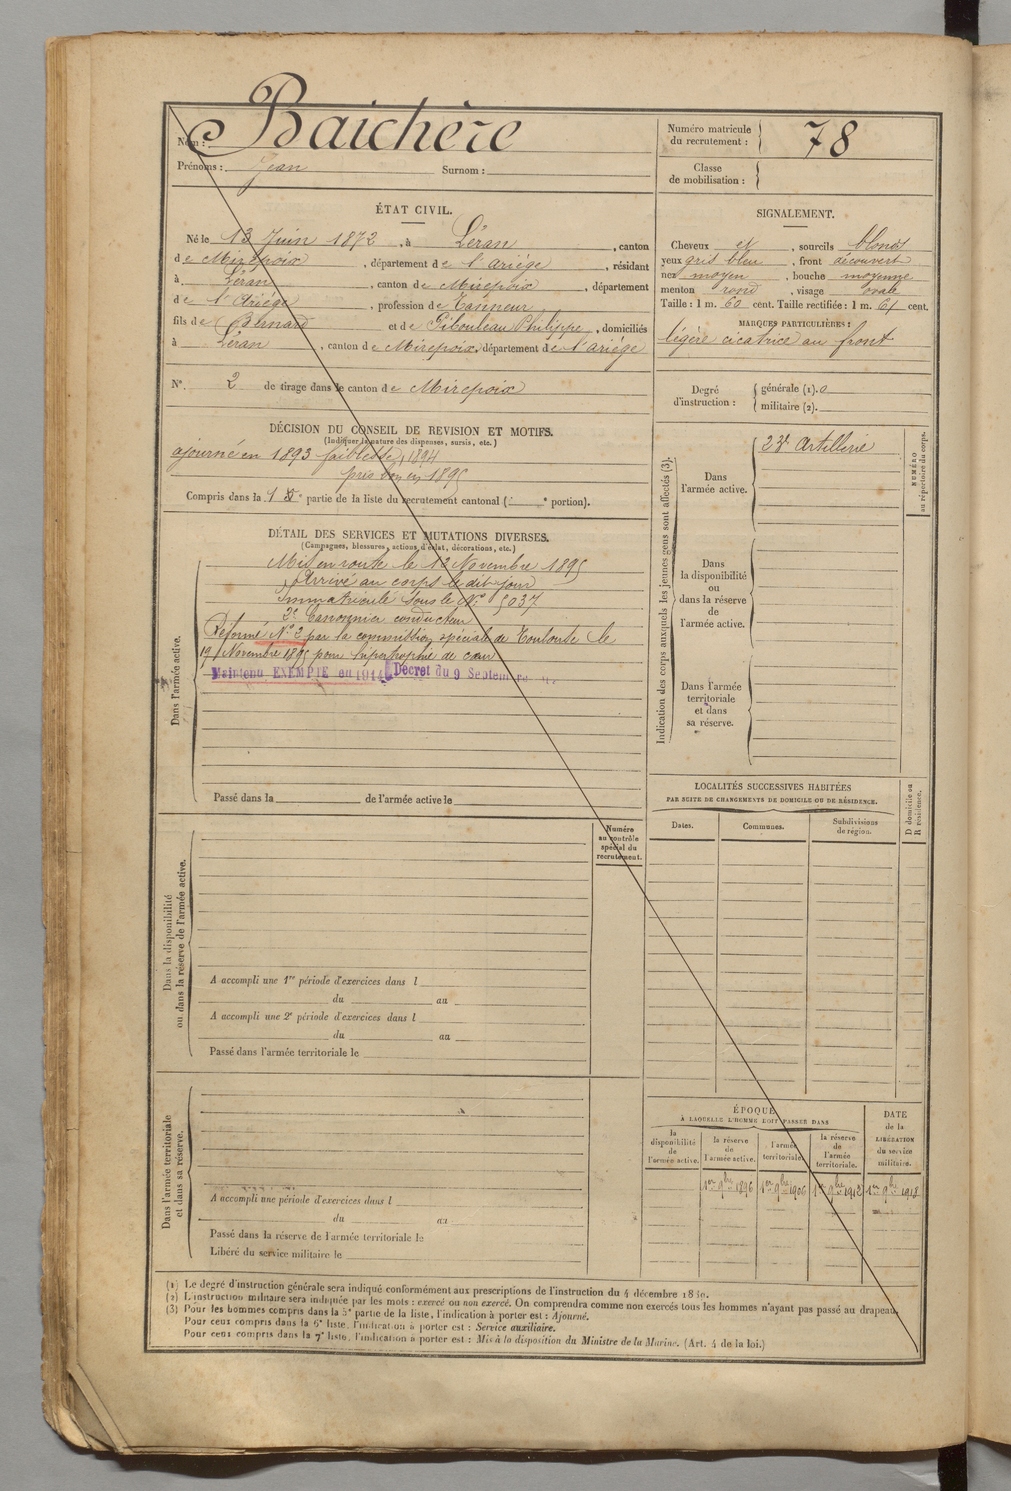 Nom : Baichère
Prénoms : Jean Surnom :
Numéro matricule
du recrutement : 78
Classe
de mobilisation :
ÉTAT CIVIL.
Né le 13 Juin 1872, à Léran, canton
de Mirepoix, département de l'Ariége, résidant
à Léran, canton de Mirepoix, département
de l'Ariége, profession de Tanneur
fils de Bernard et de Pibouleau Philippe, domiciliés
à Léran, canton de Mirepoix, département de l'ariége
N°. 2 de tirage dans le canton de Mirepoix
DÉCISION DU CONSEIL DE REVISION ET MOTIFS.
(Indiquer la nature des dispenses, sursis, etc.)
ajourné en 1893 faiblesse, 1894
pris bon en 1895
Compris dans la 1e partie de la liste du recrutement cantonal ( e portion).
DÉTAIL DES SERVICES ET MUTATIONS DIVERSES.
(Campagnes, blessures, actions d'éclat, décorations, etc.)
Dans l'armée active.
Mis en route le 13 Novembre 1895
Arrivé au corps le dit jour
immatriculé sous le N° 5037
2e Canonnier conducteur
Réformé N° 2 par la commission spéciale de Toulouse le
19 Novembre 1895 pour hypertrophie de cœur
Maintenu EXEMPTE en 1914 Décret du 9 Septembre
Passé dans la de l'armée active le
Dans la disponibilité
ou dans la réserve de l'armée active.
Numéro
au contrôle
spécial du
recrutement.
A accompli une 1re période d'exercices dans l
du au
A accompli une 2e période d'exercices dans l
du au
Passé dans l'armée territoriale le
Dans l'armée territoriale
et dans sa réserve.
A accompli une période d'exercices dans l
du au
Passé dans la réserve de l'armée territoriale le
Libéré du service militaire le
SIGNALEMENT.
Cheveux et, sourcils blonds
yeux gris bleu, front découvert
nez moyen, bouche moyenne
menton rond, visage ovale
Taille : 1 m. 60 cent. Taille rectifiée : 1 m. 61 cent.
MARQUES PARTICULIÈRES :
légère cicatrice au front
Degré
d'instruction :
générale (1). 0
militaire (2).
Indication des corps auxquels les jeunes gens sont affectés (3).
NUMÉRO
au répertoire du corps.
Dans
l'armée active.
23e Artillerie
Dans
la disponibilité
ou
dans la réserve
de
l'armée active.
Dans l'armée
territoriale
et dans
sa réserve.
LOCALITÉS SUCCESSIVES HABITÉES
PAR SUITE DE CHANGEMENTS DE DOMICILE OU DE RÉSIDENCE.
D domicile ou
R résidence.
Dates. Communes. Subdivisions
de région.
ÉPOQUE
À LAQUELLE L'HOMME DOIT PASSER DANS
la
disponibilité
de
l'armée active.
la réserve
de
l'armée active.
l'armée
territoriale.
la réserve
de
l'armée
territoriale.
DATE
de la
LIBÉRATION
du service
militaire.
1er 9bre 1896 1er 9bre 1906 1er 9bre 1912 1er 9bre 1918
(1) Le degré d'instruction générale sera indiqué conformément aux prescriptions de l'instruction du 4 décembre 1889.
(2) L'instruction militaire sera indiquée par les mots : exercé ou non exercé. On comprendra comme non exercés tous les hommes n'ayant pas passé au drapeau.
(3) Pour les hommes compris dans la 5e partie de la liste, l'indication à porter est : Ajourné.
Pour ceux compris dans la 6e liste, l'indication à porter est : Service auxiliaire.
Pour ceux compris dans la 7e liste, l'indication à porter est : Mis à la disposition du Ministre de la Marine. (Art. 4 de la loi.)